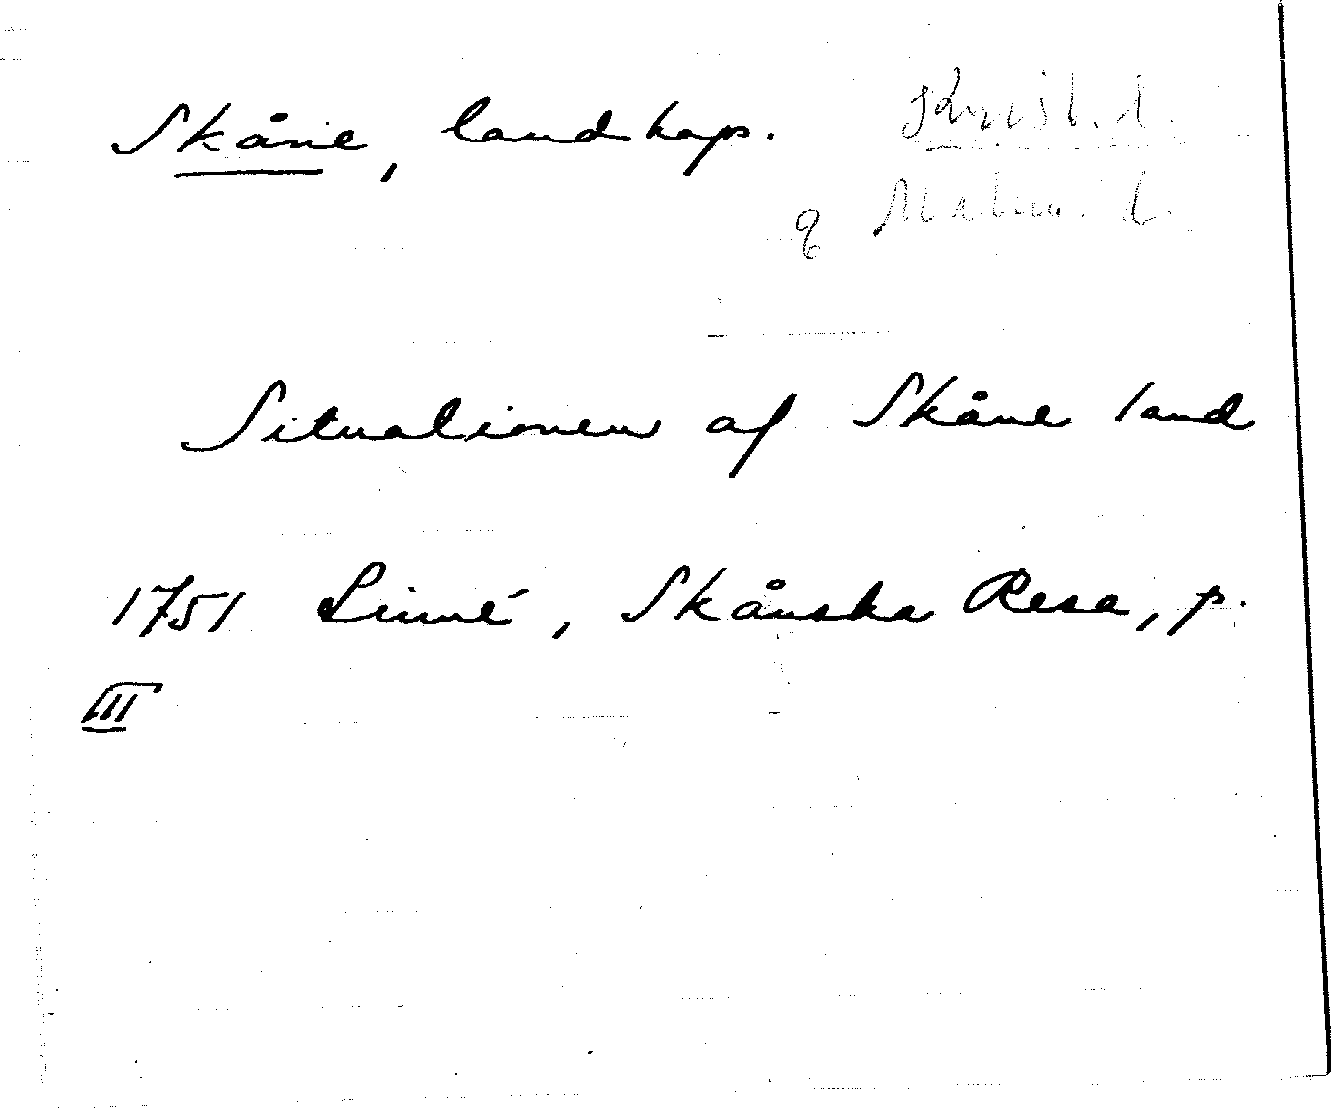 Skåne, landskap. Krist. l.
o Malm. l.
Situationen af Skåne land
1751 Linné, Skånska Resa, p.
III